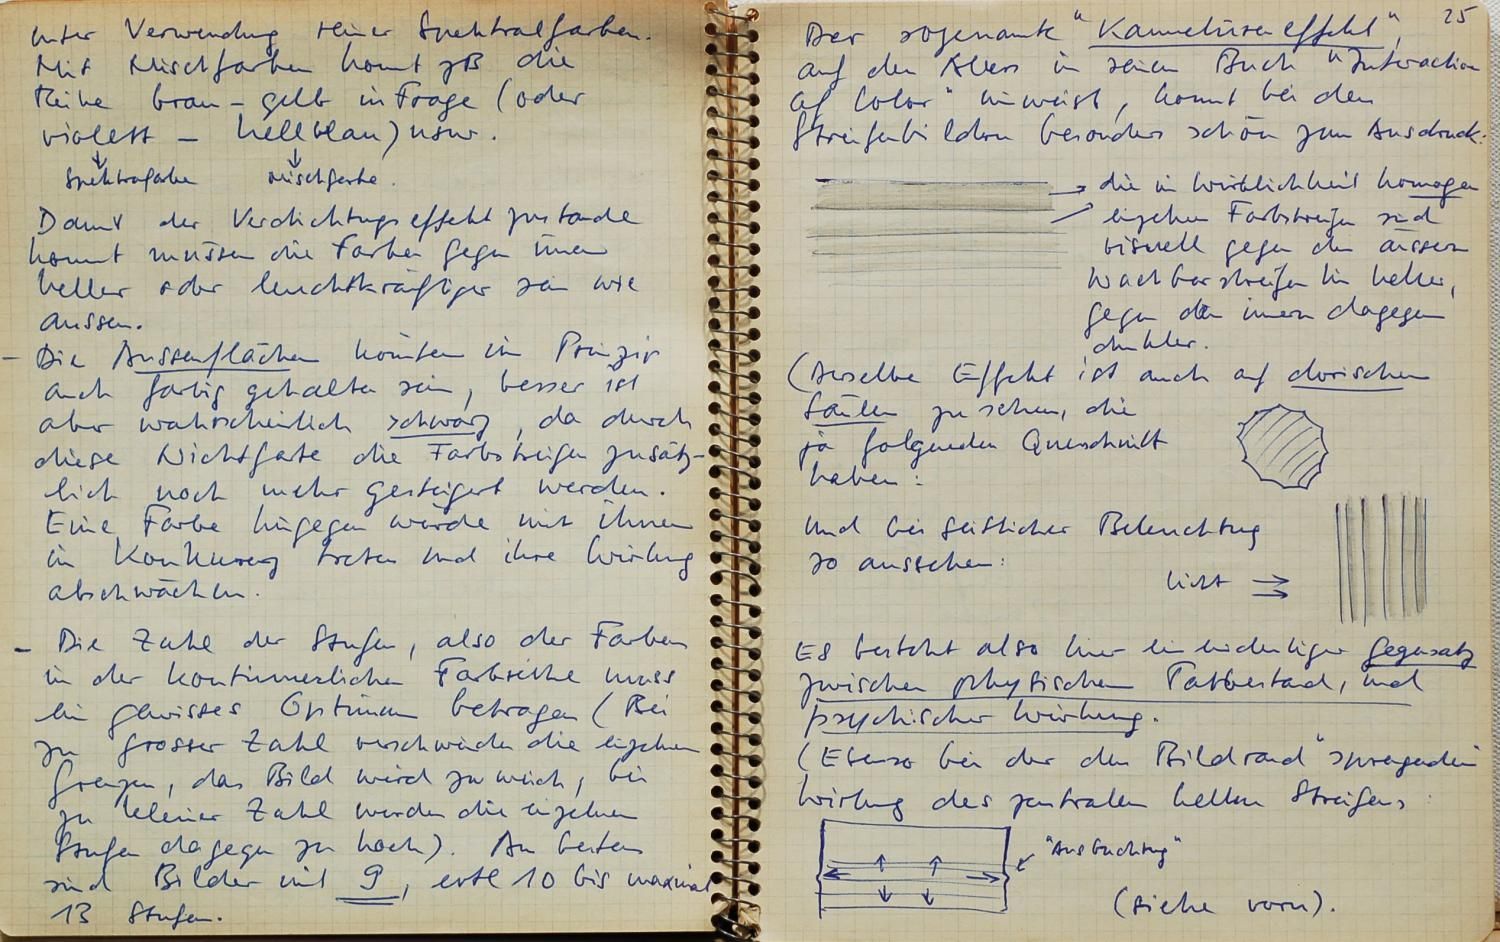 unter Verwendung reiner Spektralfarben.
Mit Mischfarben kommt zB die
Reihe braun - gelb in Frage (oder
violett - hellblau) usw.
Spektralfarbe Mischfarbe.
Damit der Verdichtungseffekt zustande
kommt müssen die Farben gegen innen
heller oder leuchtkräftiger sein wie
aussen.
- Die Aussenflächen könnten im Prinzip
auch farbig gehalten sein, besser ist
aber wahrscheinlich schwarz, da durch
diese Nichtfarbe die Farbstreifen zusätz-
lich noch mehr gesteigert werden.
Eine Farbe hingegen würde mit ihnen
in Konkurrenz treten und ihre Wirkung
abschwächen.
- Die Zahl der Stufen, also der Farben
in der kontinuierlichen Farbreihe muss
ein gewisses Optimum betragen (Bei
zu grosser Zahl verschwinden die einzelnen
Grenzen, das Bild wird zu weich, bei
zu kleiner Zahl werden die einzelnen
Stufen dagegen zu hoch). Am besten
sind Bilder mit 9, evtl 10 bis maximal
13 Stufen.
25
Der sogenannte "Kannelüreneffekt",
auf den Albers in seinem Buch "Interaction
of Color" hinweist, kommt bei den
Streifenbildern besonders schön zum Ausdruck:
die in Wirklichkeit homogen
einzelnen Farbstreifen sind
visuell gegen den äussern
Nachbarstreifen hin heller,
gegen den innern dagegen
dunkler.
(Derselbe Effekt ist auch auf dorischen
Säulen zu sehen, die
ja folgenden Querschnitt
haben:
und bei seitlicher Beleuchtung
so aussehen:
Licht
Es besteht also hier ein eindeutiger Gegensatz
zwischen physischem Tatbestand, und
psychischer Wirkung.
(Ebenso bei der den Bildrand "sprengenden"
Wirkung des zentralen hellen Streifens:
"Ausbuchtung"
(siehe vorn).